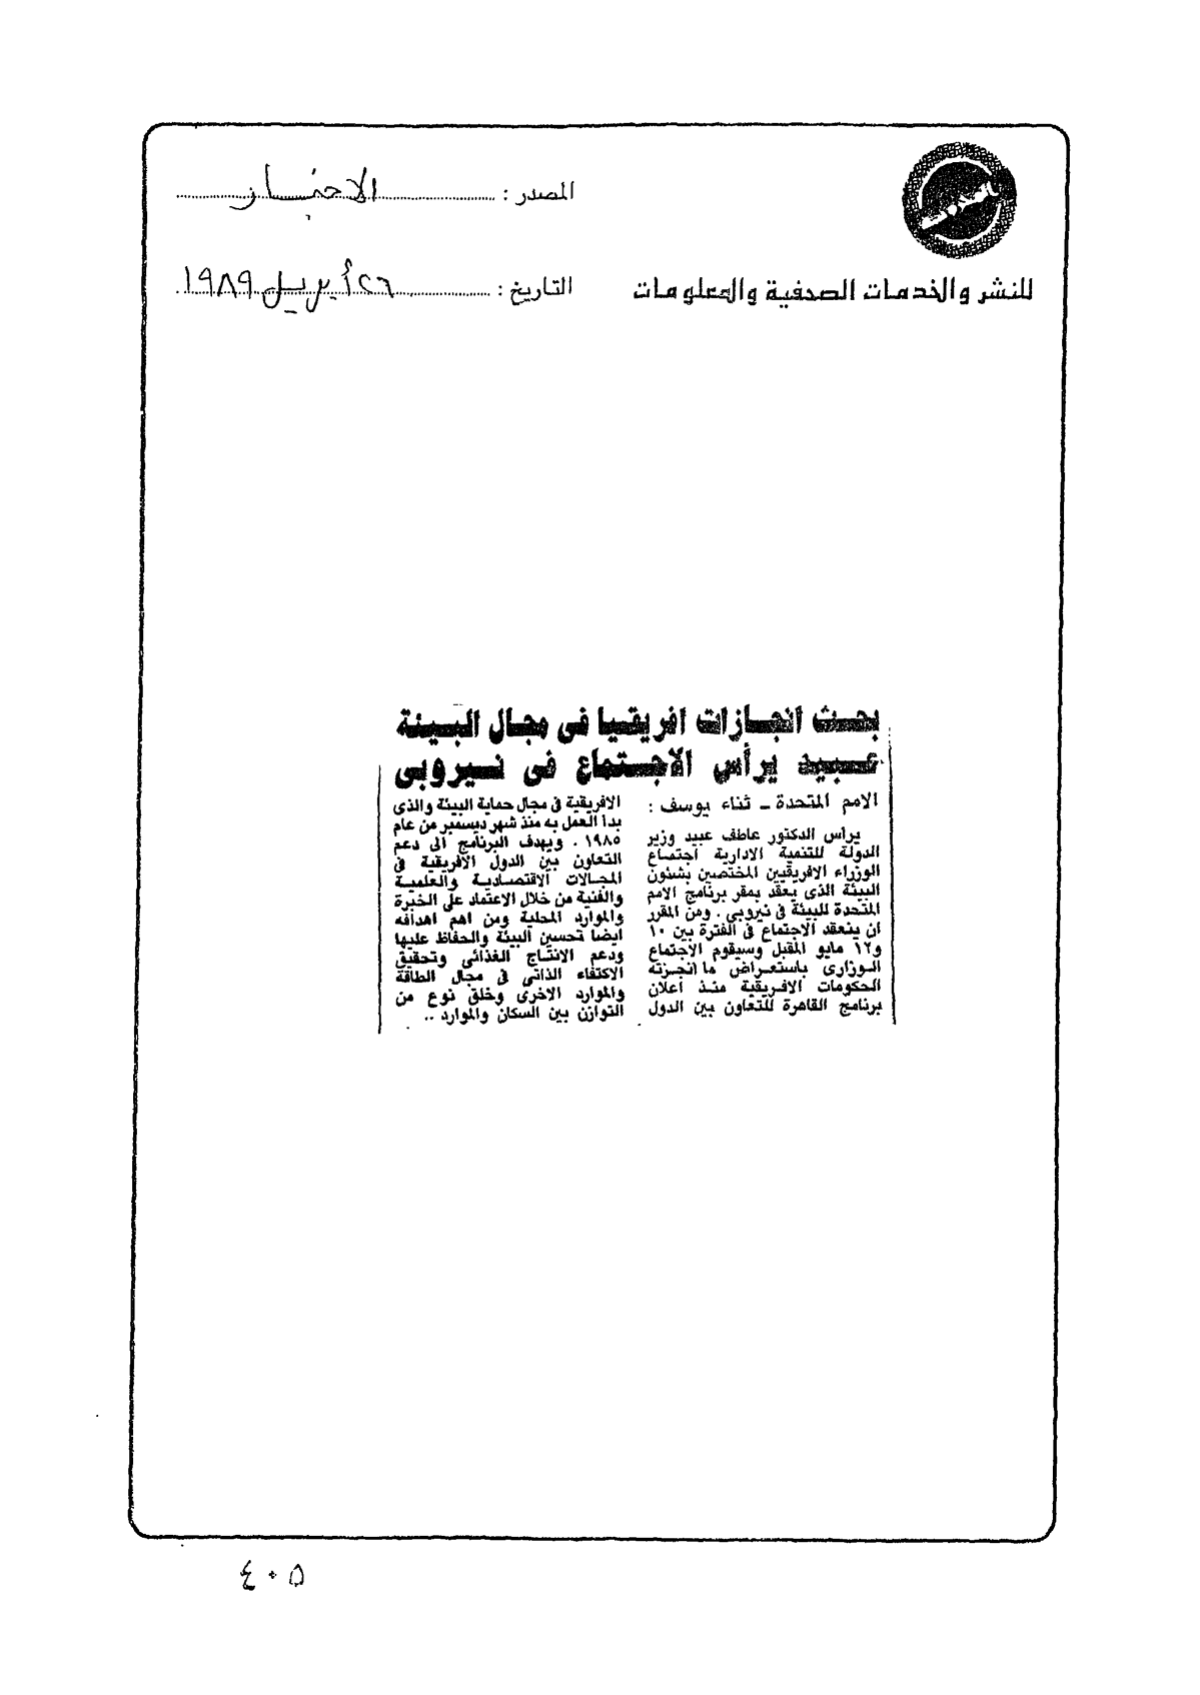 المصدر : الاخبار
للنشر والخدمات الصحفية والمعلومات
التاريخ : ٢٦ أبريل ١٩٨٩
بحث انجازات افريقيا فى مجال البيئة
عبيد يرأس الاجتماع فى نيروبى
الامم المتحدة ـ ثناء يوسف :
يرأس الدكتور عاطف عبيد وزير
الدولة للتنمية الادارية اجتماع
الوزراء الافريقيين المختصين بشئون
البيئة الذى يعقد بمقر برنامج الامم
المتحدة للبيئة فى نيروبى . ومن المقرر
ان ينعقد الاجتماع فى الفترة بين ١٠
و١٢ مايو المقبل وسيقوم الاجتماع
الوزارى باستعراض ما انجزته
الحكومات الافريقية منذ اعلان
برنامج القاهرة للتعاون بين الدول
الافريقية فى مجال حماية البيئة والذى
بدا العمل به منذ شهر ديسمبر من عام
١٩٨٥ . ويهدف البرنامج الى دعم
التعاون بين الدول الافريقية فى
المجالات الاقتصادية والعلمية
والفنية من خلال الاعتماد على الخبرة
والموارد المحلية ومن اهم اهدافه
ايضا تحسين البيئة والحفاظ عليها
ودعم الانتاج الغذائى وتحقيق
الاكتفاء الذاتى فى مجال الطاقة
والموارد الاخرى وخلق نوع من
التوازن بين السكان والموارد ..
٤٠٥